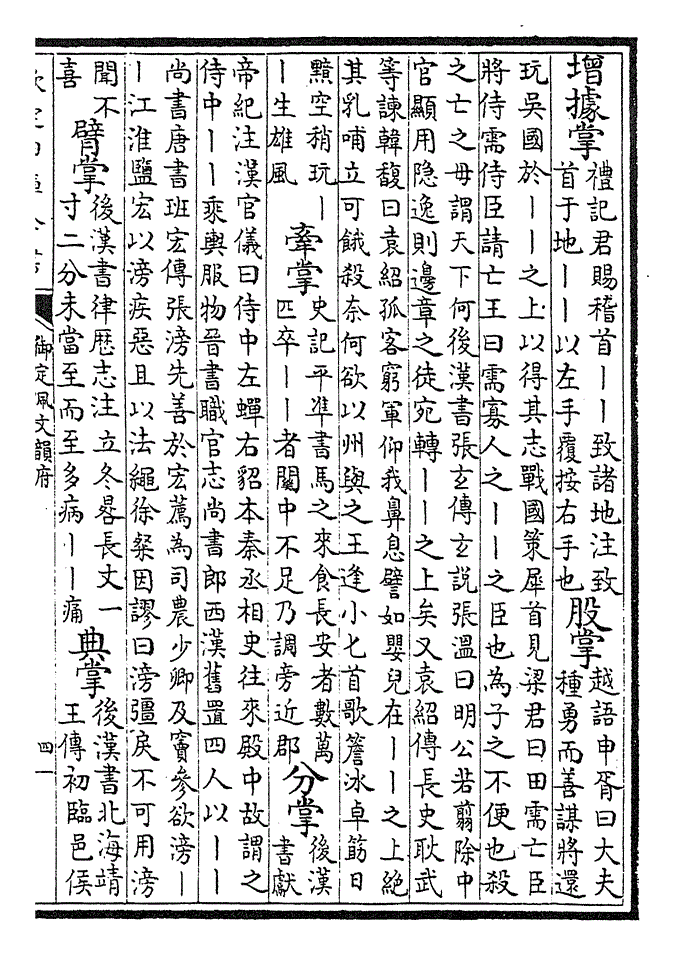 增據掌
禮記君賜稽首｜｜致諸地注致
首于地｜｜以左手覆按右手也
股掌
越語申胥曰大夫
種勇而善謀將還
玩吳國於｜｜之上以得其志戰國策犀首見梁君曰田需亡臣
將侍需侍臣請亡王曰需寡人之｜｜之臣也為子之不便也殺
之亡之毋謂天下何後漢書張玄傳玄說張溫曰明公若翦除中
官顯用隐逸則邊章之徒宛轉｜｜之上矣又袁紹傳長史耿武
等諫韓馥曰袁紹孤客窮軍仰我鼻息譬如嬰兒在｜｜之上絕
其乳哺立可餓殺奈何欲以州與之王逢小匕首歌簷冰卓筯日
黰空稍玩｜
｜生雄風
牽掌
史記平準書馬之來食長安者數萬
匹卒｜｜者關中不足乃調旁近郡
分掌
後漢
書獻
帝紀注漢官儀曰侍中左蟬右貂本秦丞相史往來殿中故謂之
侍中｜｜乘輿服物晉書職官志尚書郎西漢舊置四人以｜｜
尚書唐書班宏傳張滂先善於宏薦為司農少卿及竇參欲滂｜
｜江淮鹽宏以滂疾惡且以法繩徐粲因謬曰滂彊戾不可用滂
聞不
喜
臂掌
後漢書律歷志注立冬晷長丈一
寸二分未當至而至多病｜｜痛
典掌
後漢書北海靖
王傳初臨邑侯
欽定四庫全書
御定佩文韻府
四一